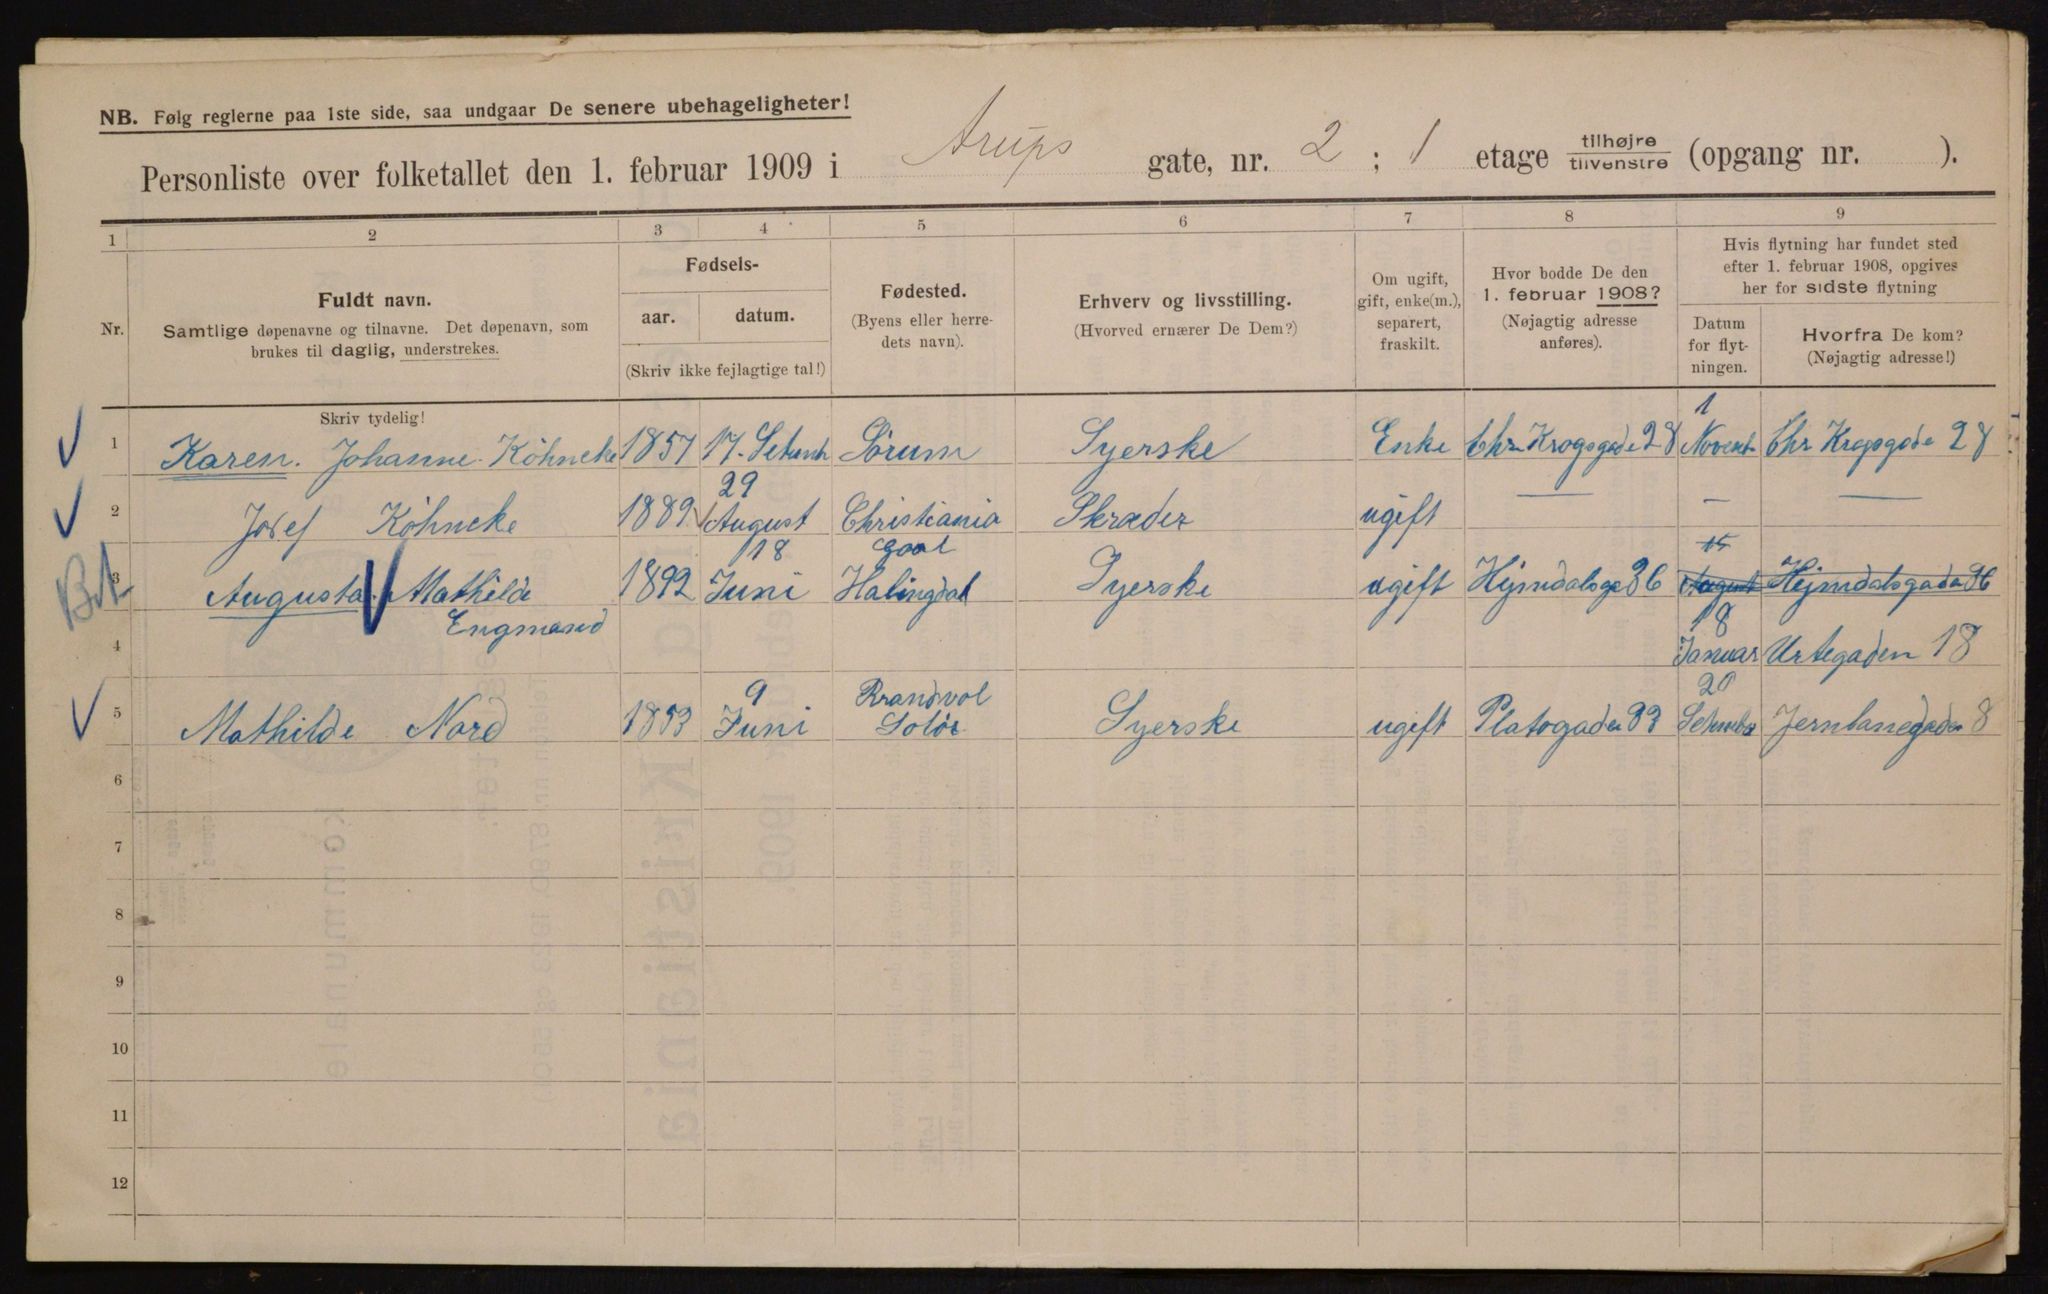 NB. Følg reglerne paa 1ste side, saa undgaar De senere ubehageligheter!
Personliste over folketallet den 1. februar 1909 i Arups gate, nr. 2 ; 1 etage tilhøjre tilvenstre (opgang nr. ).
1 2 3 4 5 6 7 8 9
Nr.
Fuldt navn.
Samtlige døpenavne og tilnavne. Det døpenavn, som
brukes til daglig, understrekes.
Skriv tydelig!
Fødsels-
aar. datum.
(Skriv ikke fejlagtige tal!)
Fødested.
(Byens eller herre-
dets navn).
Erhverv og livsstilling.
(Hvorved ernærer De Dem?)
Om ugift,
gift, enke(m.),
separert,
fraskilt.
Hvor bodde De den
1. februar 1908?
(Nøjagtig adresse
anføres).
Hvis flytning har fundet sted
efter 1. februar 1908, opgives
her for sidste flytning
Datum
for flyt-
ningen.
Hvorfra De kom?
(Nøjagtig adresse!)
1
1 Karen. Johanne. Köhncke 1857 17. Setemb Sörum Syerske Enke Chr Krogsgade 28 Novemb Chr Krogsgade 28
29
2 Josef Köhncke 1889 August Christiania Skræder ugift — — —
18 Goal 15
3 Augusta. Mathilde 1892 Juni Halingdal Syerske ugift Hejmdalsga 36 August Hejmdalsgada 36
Engmand 18
4 Januar Urtegaden 18
9 Brandvol 20
5 Mathilde Nord 1853 Juni Solör Syerske ugift Platogaden 33 Setember Jernbanegaden 8
6
7
8
9
10
11
12